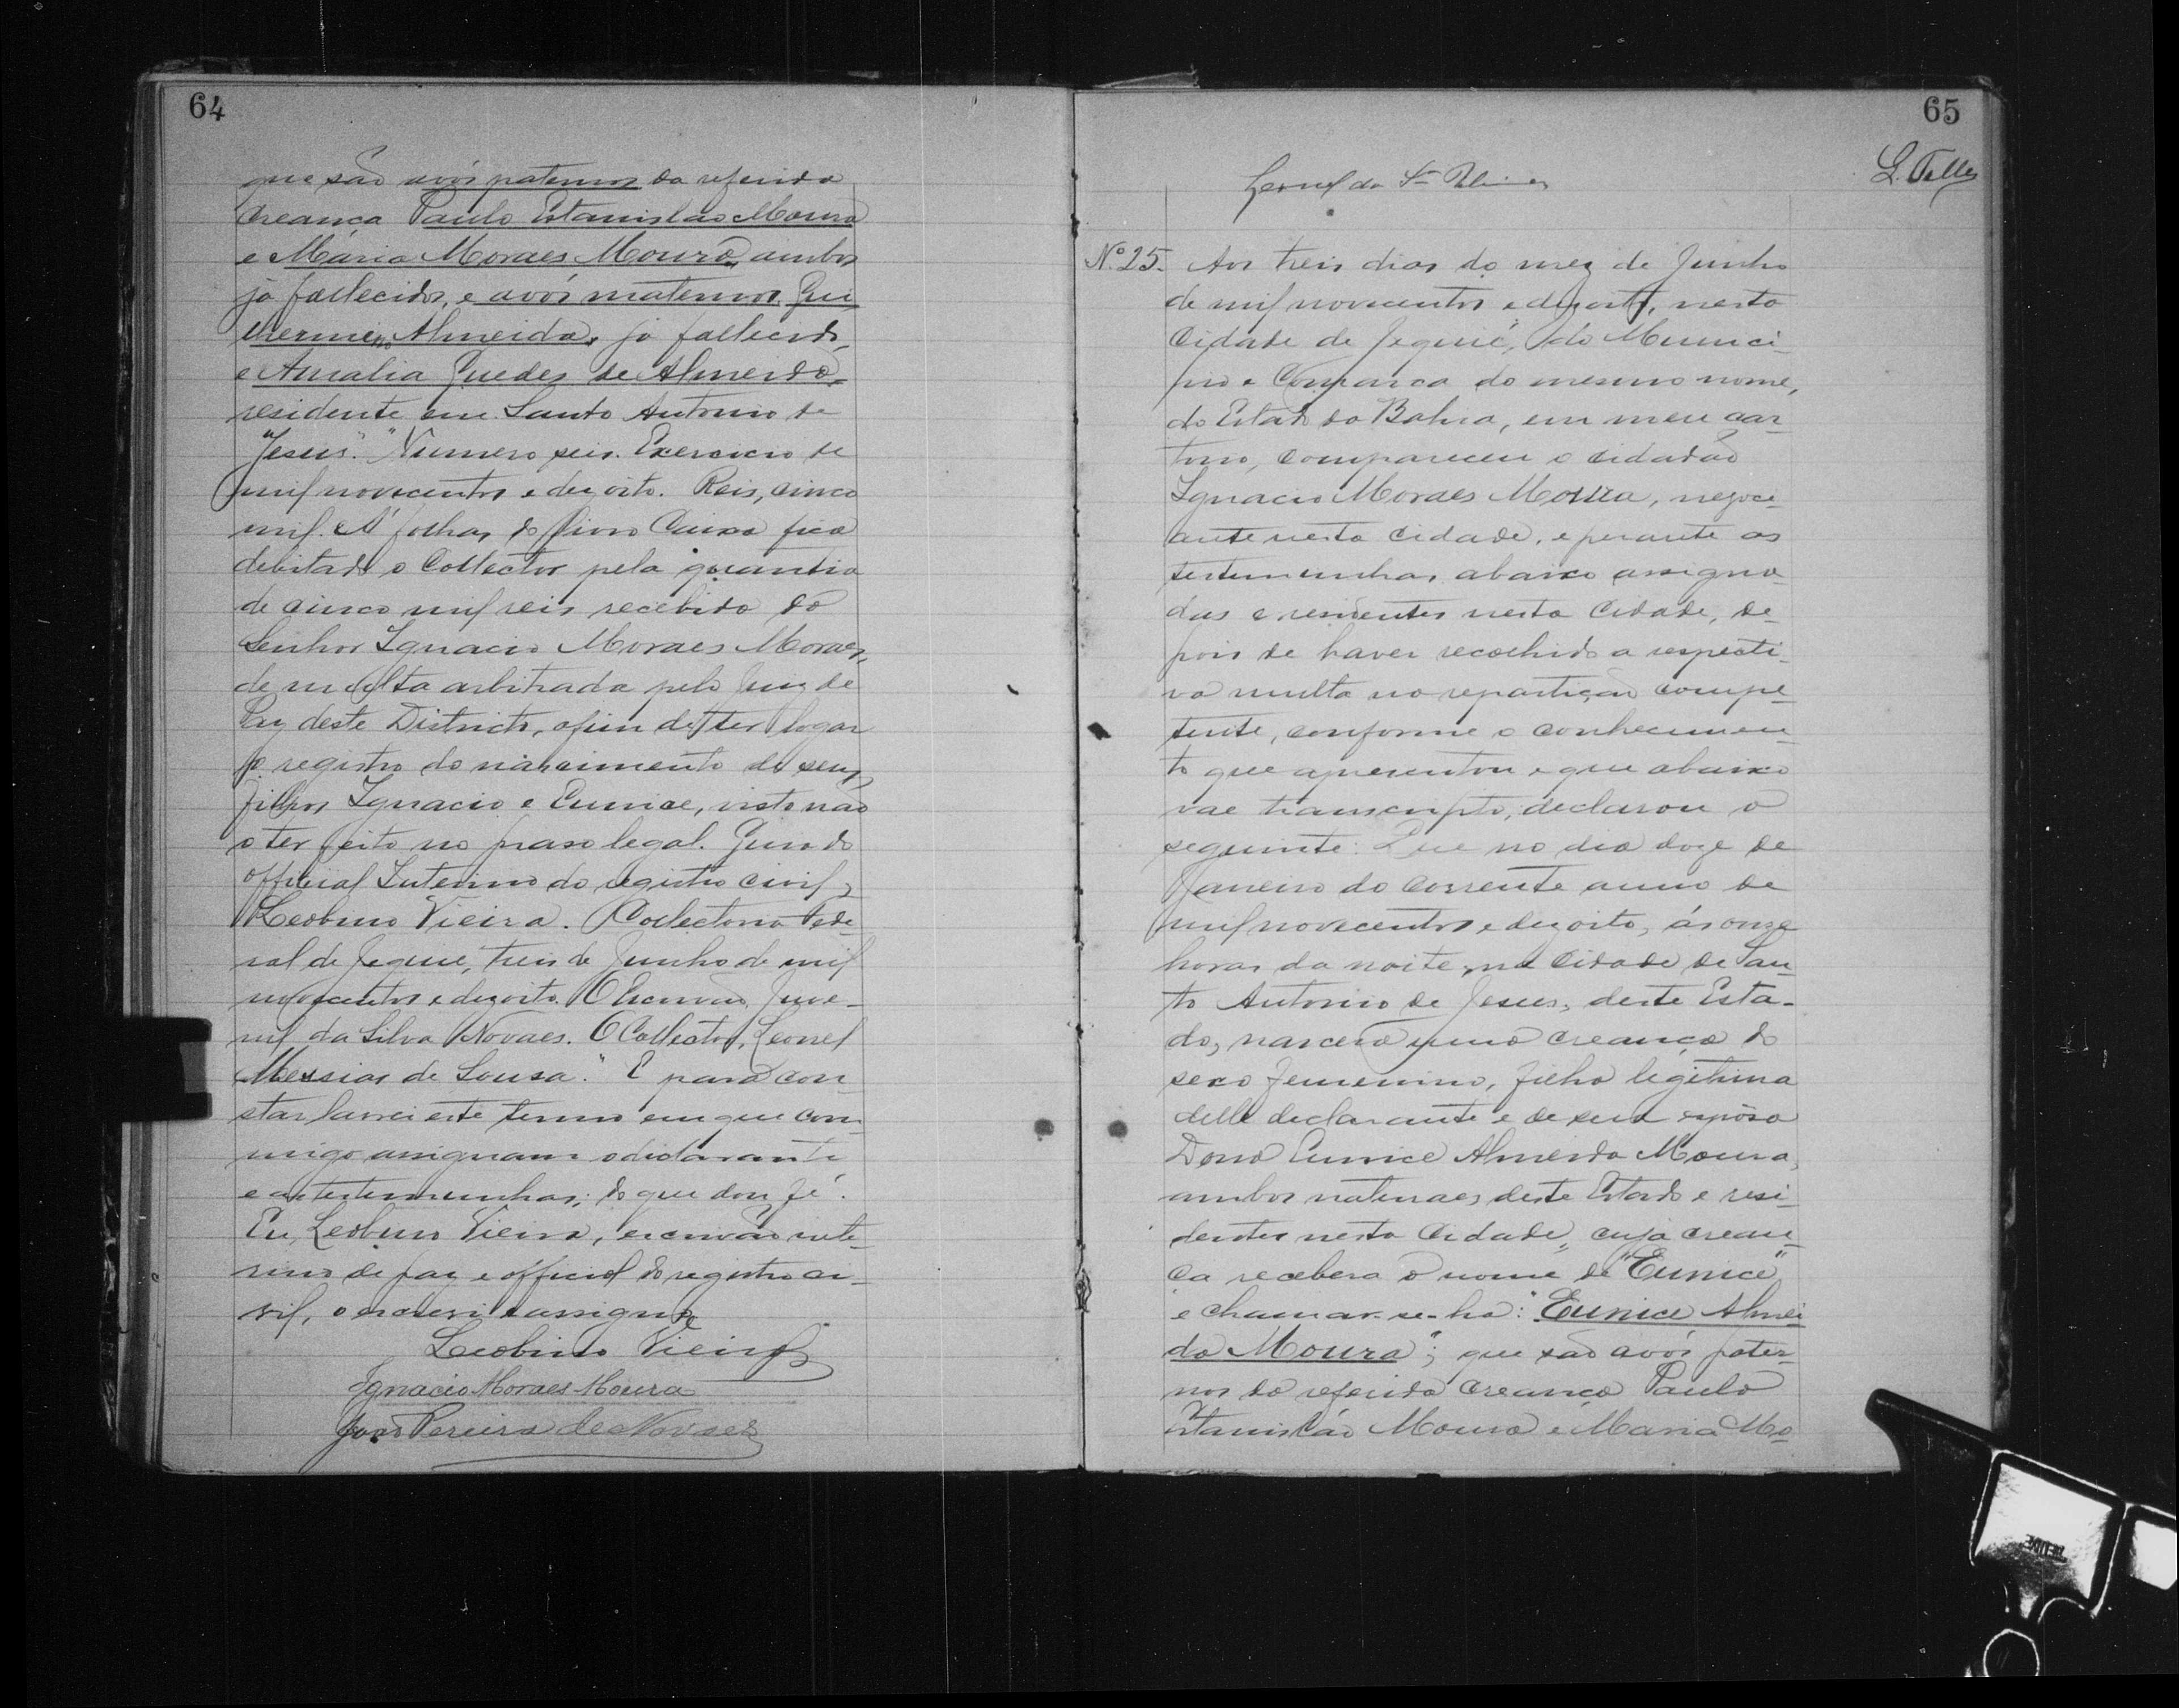 64
que são avós paternos da referida
creança Paulo Estanislao Moura
e Maria Moraes Moura, ambos
já fallecidos, e avós maternos Gui
lherme Almeida, já fallecido,
e Amalia Guedes de Almeida,
residente em Santo Antonio de
Jesus." "Numero seis. Exercicio de
mil novecentos e dezoito. Reis, cinco
mil. A' folhas do livro Caixa fica
debitado o Collector pela quantia
de cinco mil reis recebida do
Senhor Ignacio Moraes Moraes,
de multa arbitrada pelo Juiz de
Paz deste Districto, afim de ter logar
o registro do nascimento de seus
filhos Ignacio e Eunice, visto não
o ter feito no praso legal. Guia do
official Interino do registro civil,
Leobino Vieira. Collectoria Fede-
ral de Jequié, tres de Junho de mil
novecentos e dezoito. O Escrivão, Juve-
nil da Silva Novaes. O Collector, Leonel
Messias de Sousa." E para con
star lavrei este termo em que com
migo assignam o declarante
e as testemunhas; do que dou fé.
Eu, Leobino Vieira, escrivão inte-
rino de paz e official do registro ci-
vil, o escrevi e assigno
Leobino Vieira
Ignacio Moraes Moura
João Pereira de Novaes
65
L. Telles
Leonel da
Nº 25. Aos treis dias do mez de Junho
de mil novecentos e dezoito, nesta
Cidade de Jequié, do Munici-
pio e Comarca do mesmo nome,
do Estado da Bahia, em meu car
torio, compareceu o cidadão
Ignacio Moraes Moura, negoci
ante nesta cidade, e perante as
testemunhas abaixo assigna-
das e residentes nesta Cidade, de-
pois de haver recolhido a respecti-
va multa na repartição compe-
tente, conforme o conhecimen-
to que apresentou e que abaixo
vae transcripto, declarou o
seguinte: Que no dia doze de
Janeiro do corrente anno de
mil novecentos e dezoito, ás onze
horas da noite, na Cidade de San-
to Antonio de Jesus, deste Esta-
do, nascera uma creança do
sexo femenino, filha legitima
delle declarante e de sua esposa
Dona Eunice Almeida Moura,
ambos naturaes deste Estado e resi-
dentes nesta Cidade, cuja crean-
ça recebera o nome de "Eunice"
e chamar-se-ha: "Eunice Almei
da Moura"; que são avós pater-
nos da referida creança Paulo
Estanisláo Moura e Maria Mo-